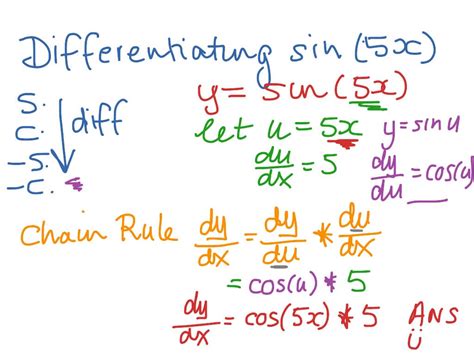 Differentiating sin (5x)
S.
C.
-S.
-C.
diff
y = sin (5x)
let u = 5x y = sin u
du/dx = 5 dy/du = cos(u)
Chain Rule dy/dx = dy/du * du/dx
= cos(u) * 5
dy/dx = cos(5x) * 5 ANS